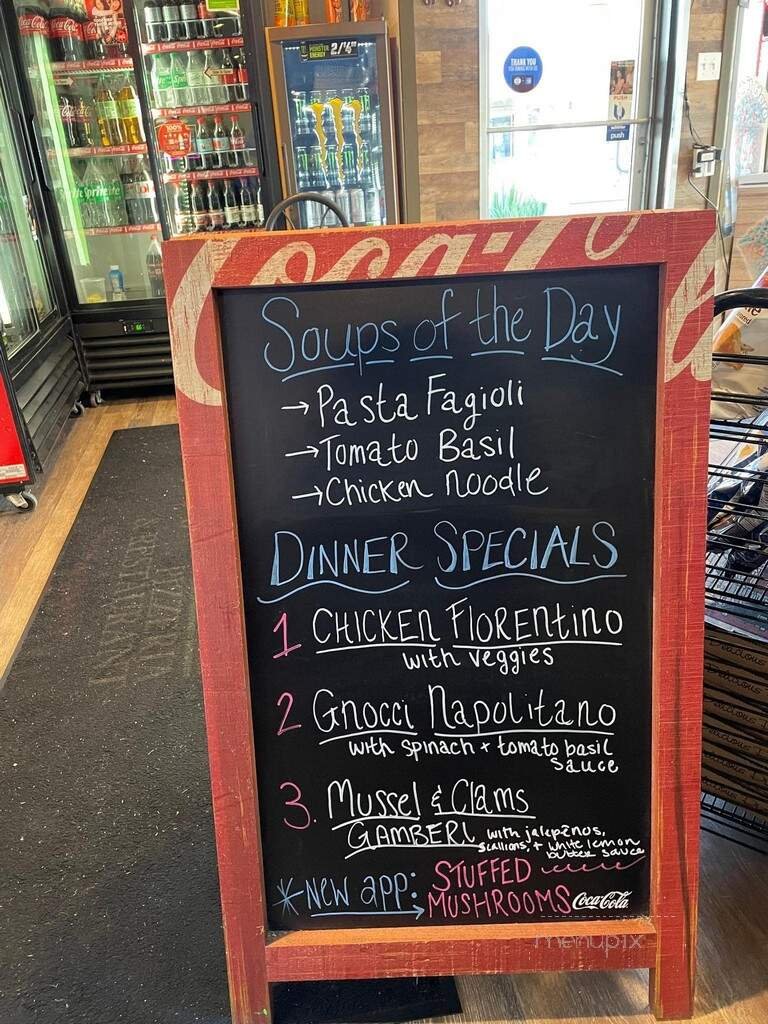 Coca-Cola
MONSTER ENERGY 2/$
THANK YOU
PUSH
push
Coca-Co
Soups of the Day
→Pasta Fagioli
→Tomato Basil
→Chicken Noodle
DINNER SPECIALS
1 CHICKEN FLORENTINO
with veggies
2 Gnocci Napolitano
with spinach + tomato basil
sauce
3. Mussel & Clams
GAMBERI with jalepēnos,
scallions, + white lemon
butter sauce
*NEW APP: STUFFED
MUSHROOMS Coca-Cola
menupix